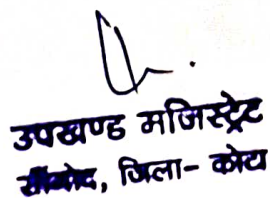 उपखण्ड मजिस्ट्रेट
सांगोद, जिला- कोटा